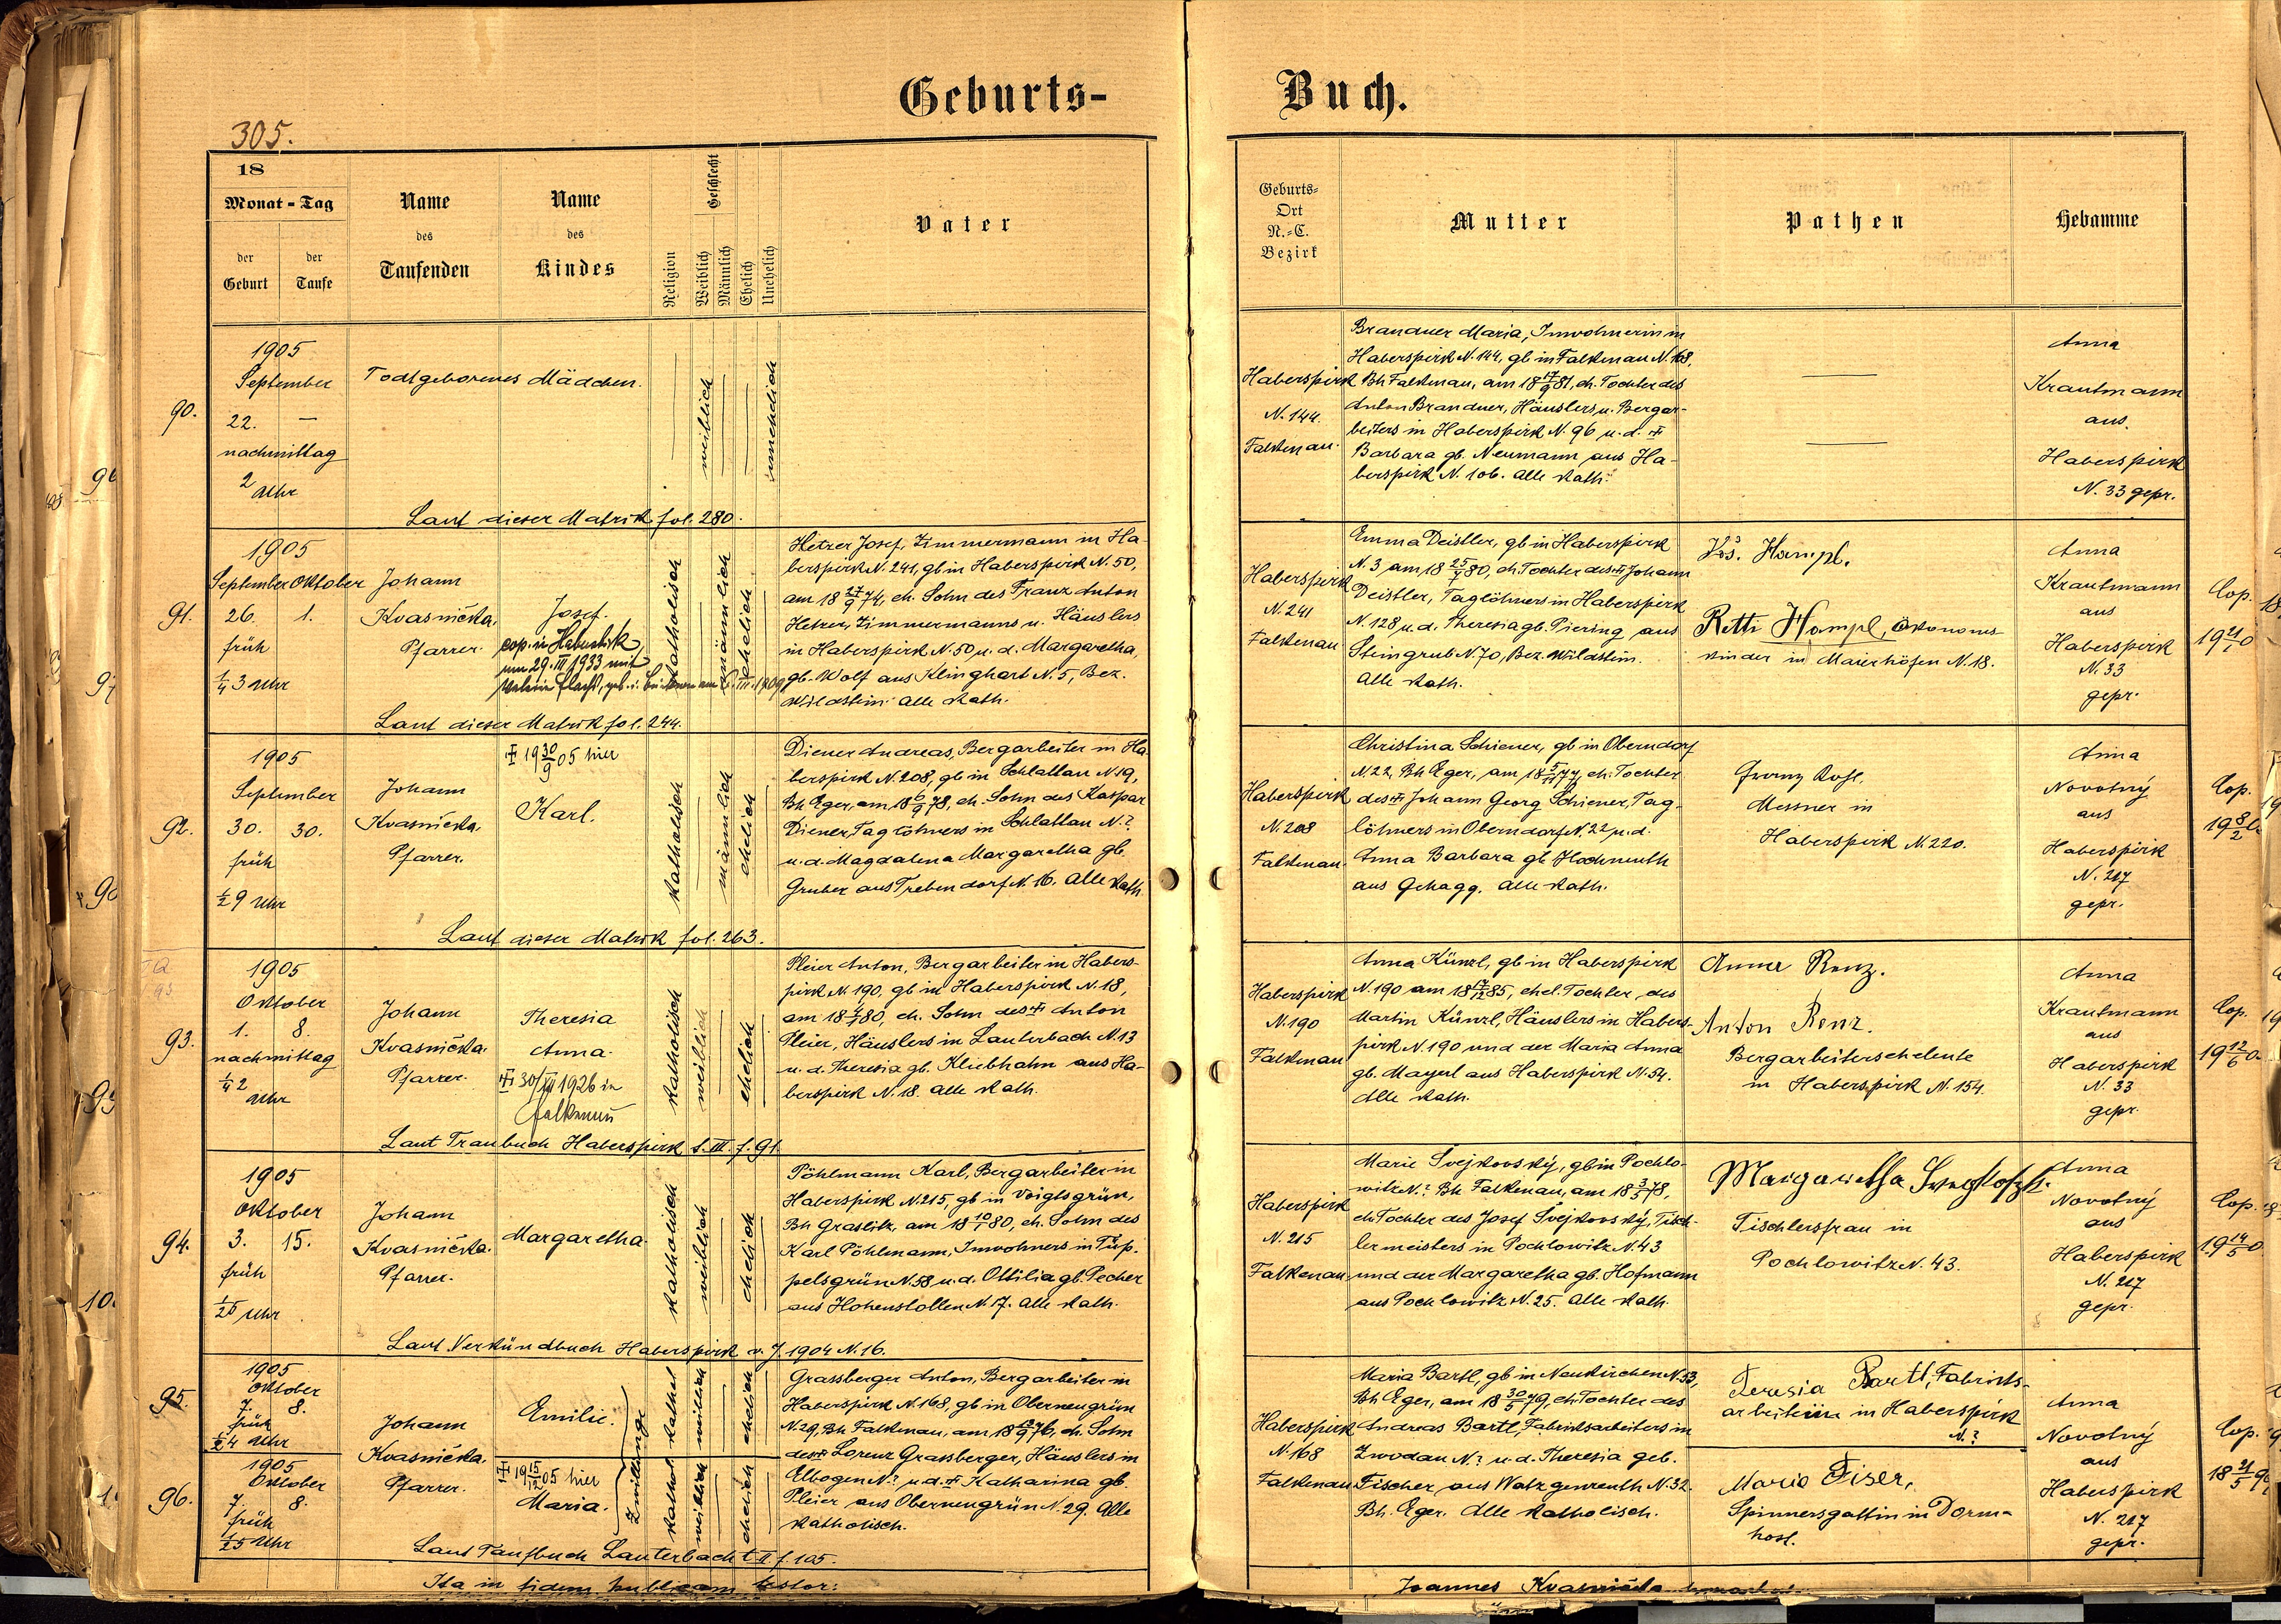 Geburts-
Buch.
305.
18
Monat - Tag
der Geburt
der Taufe
Name
des
Taufenden
Name
des
Kindes
Religion
Geschlecht
Weiblich
Männlich
Ehelich
Unehelich
Vater
Geburts-
Ort
N.-C.
Bezirk
Mutter
Pathen
Hebamme
90.
1905
September
22. —
nachmittag
2 Uhr
Todtgeborenes Mädchen.
weiblich
unehelich
Laut dieser Matrik fol. 280.
Haberspirk
N. 144.
Falkenau.
Brandner Maria, Inwohnerin in
Haberspirk N. 144, gb in Falkenau N. 168,
Bh Falkenau, am 18 17/9 81, eh. Tochter des
Anton Brandner, Häuslers u. Bergar-
beiters in Haberspirk N. 96 u. d. ✝
Barbara gb. Neumann aus Ha-
berspirk N. 106. Alle kath.
Anna
Krautmann
aus
Haberspirk
N. 33 gepr.
91.
1905
September Oktober
26. 1.
früh
1/4 3 Uhr
Johann
Kvasnička,
Pfarrer.
Josef.
cop. in Haberspirk
am 29. III 1933 mit
katholisch
männlich
ehelich
Hetzer Josef, Zimmermann in Ha-
berspirk N. 241, gb in Haberspirk N. 50,
am 18 27/9 74, eh. Sohn des Franz Anton
Hetzer, Zimmermanns u. Häuslers
in Haberspirk N. 50 u. d. Margaretha
gb. Wolf aus Klinghart N. 5, Bez.
Wildstein. Alle kath.
Laut dieser Matrik fol. 244.
Haberspirk
N. 241
Falkenau
Emma Deistler, gb in Haberspirk
N. 3 am 18 25/7 80, eh. Tochter des ✝ Johann
Deistler, Taglöhners in Haberspirk
N. 128 u. d. Theresia gb. Piering aus
Steingrub N. 70, Bez. Wildstein.
Alle kath.
Jos. Hampl.
Retti Hampl, Ökonoms-
kinder in Maierhöfen N. 18.
Anna
Krautmann
aus
Haberspirk
N. 33
gepr.
Cop.
92.
1905
September
30. 30.
früh
1/2 9 Uhr
Johann
Kvasnička,
Pfarrer.
✝ 19 30/9 05 hier
Karl.
katholisch
männlich
ehelich
Diener Andreas, Bergarbeiter in Ha-
berspirk N. 208, gb in Schlattau N 19,
Bh Eger, am 18 6/9 78, eh. Sohn des Kaspar
Diener, Taglöhners in Schlattau N. ?
u. d. Magdalena Margaretha gb.
Gruber aus Trebendorf N. 16. Alle kath.
Laut dieser Matrik fol. 263.
Haberspirk
N. 208
Falkenau.
Christina Schiener, gb in Oberndorf
N. 22, Bh Eger, am 18 5/11 77, eh. Tochter
des ✝ Johann Georg Schiener, Tag-
löhners in Oberndorf N. 22 u. d.
Anna Barbara gb Hochmuth
aus Gehagg. Alle kath.
Messner in
Haberspirk N. 220.
Anna
Novotný
aus
Haberspirk
N. 217
gepr.
Cop.
93.
1905
Oktober
1. 8.
nachmittag
1/4 2
Uhr
Johann
Kvasnička.
Pfarrer.
Theresia
Anna.
1926 in
Falkenau
katholisch
weiblich
ehelich
Pleier Anton, Bergarbeiter in Habers-
pirk N. 190, gb in Haberspirk N. 18,
am 18 4/7 80, eh. Sohn des ✝ Anton
Pleier, Häuslers in Lauterbach N. 13
u. d. Theresia gb. Kliebhahn aus Ha-
berspirk N. 18. Alle kath.
Laut Traubuch Haberspirk t. III. f. 91.
Haberspirk
N. 190
Falkenau
Anna Künzl, gb in Haberspirk
N. 190 am 18 17/12 85, ehel. Tochter des
Martin Künzl, Häuslers in Habers-
pirk N. 190 und der Maria Anna
gb. Mayerl aus Haberspirk N. 54.
Alle kath.
Anna Renz.
Anton Renz.
Bergarbeiterseheleute
in Haberspirk N. 154.
Anna
Krautmann
aus
Haberspirk
N. 33
gepr.
Cop.
94.
1905
Oktober
3. 15.
früh
1/2 6 Uhr
Johann
Kvasnička.
Pfarrer.
Margaretha.
katholisch
weiblich
ehelich
Pöhlmann Karl, Bergarbeiter in
Haberspirk N. 215, gb in Voigtsgrün,
Bh Graslitz, am 18 10/1 80, eh. Sohn des
Karl Pöhlmann, Inwohners in Tüp-
pelsgrün N. 58 u. d. Ottilia gb. Pecher
aus Hohenstollen N. 17. Alle kath.
Laut Verkündbuch Haberspirk v. J. 1904 N. 16.
Haberspirk
N. 215
Falkenau
Marie Svejkovský, gb in Pochlo-
witz N. ? Bh Falkenau, am 18 3/5 78,
eh. Tochter des Josef Svejkovský, Tisch-
lermeisters in Pochlowitz N. 43
und der Margaretha gb. Hofmann
aus Pochlowitz N. 25. Alle kath.
Margaretha
Tischlersfrau in
Pochlowitz N. 43.
Anna
Novotný
aus
Haberspirk
N. 217
gepr.
Cop.
95.
1905
Oktober
7. 8.
früh
1/2 4 Uhr
Johann
Kvasnička.
Pfarrer.
Emilie.
Zwillinge
kathol.
weiblich
ehelich
Grassberger Anton, Bergarbeiter in
Haberspirk N. 168, gb in Oberneugrün
N. 29, Bh Falkenau, am eh. Sohn
des ✝ Lorenz Grassberger, Häuslers in
Elbogen N. ? u. d. ✝ Katharina gb.
Pleier aus Oberneugrün N. 29. Alle
katholisch.
96.
1905
Oktober
7. 8.
früh
1/2 5 Uhr
✝ 19 15/12 05 hier
Maria.
kathol.
weiblich
ehelich
Laut Taufbuch Lauterbach t II f. 105.
Haberspirk
N. 168
Falkenau
Maria Bartl, gb in Neukirchen N. 53,
Bh Eger, am 18 30/5 79, eh. Tochter des
Andreas Bartl, Fabriksarbeiters in
Zwodau N. ? u. d. Theresia geb.
Fischer aus Watzgenreuth N. 32.
Bh. Eger. Alle katholisch.
Teresia Bartl, Fabriks-
arbeiterin in Haberspirk
N. ?
Maria Fiser,
Spinnersgattin in
Anna
Novotný
aus
Haberspirk
N. 217
gepr.
Cop.
Ita in fidem publicam testor:
Joannes Kvasnička